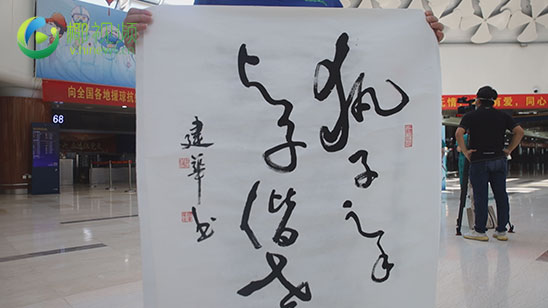 椰视频
向全国各地援琼抗
68
无情
有爱，同心
执子之手
与子偕老
建华书